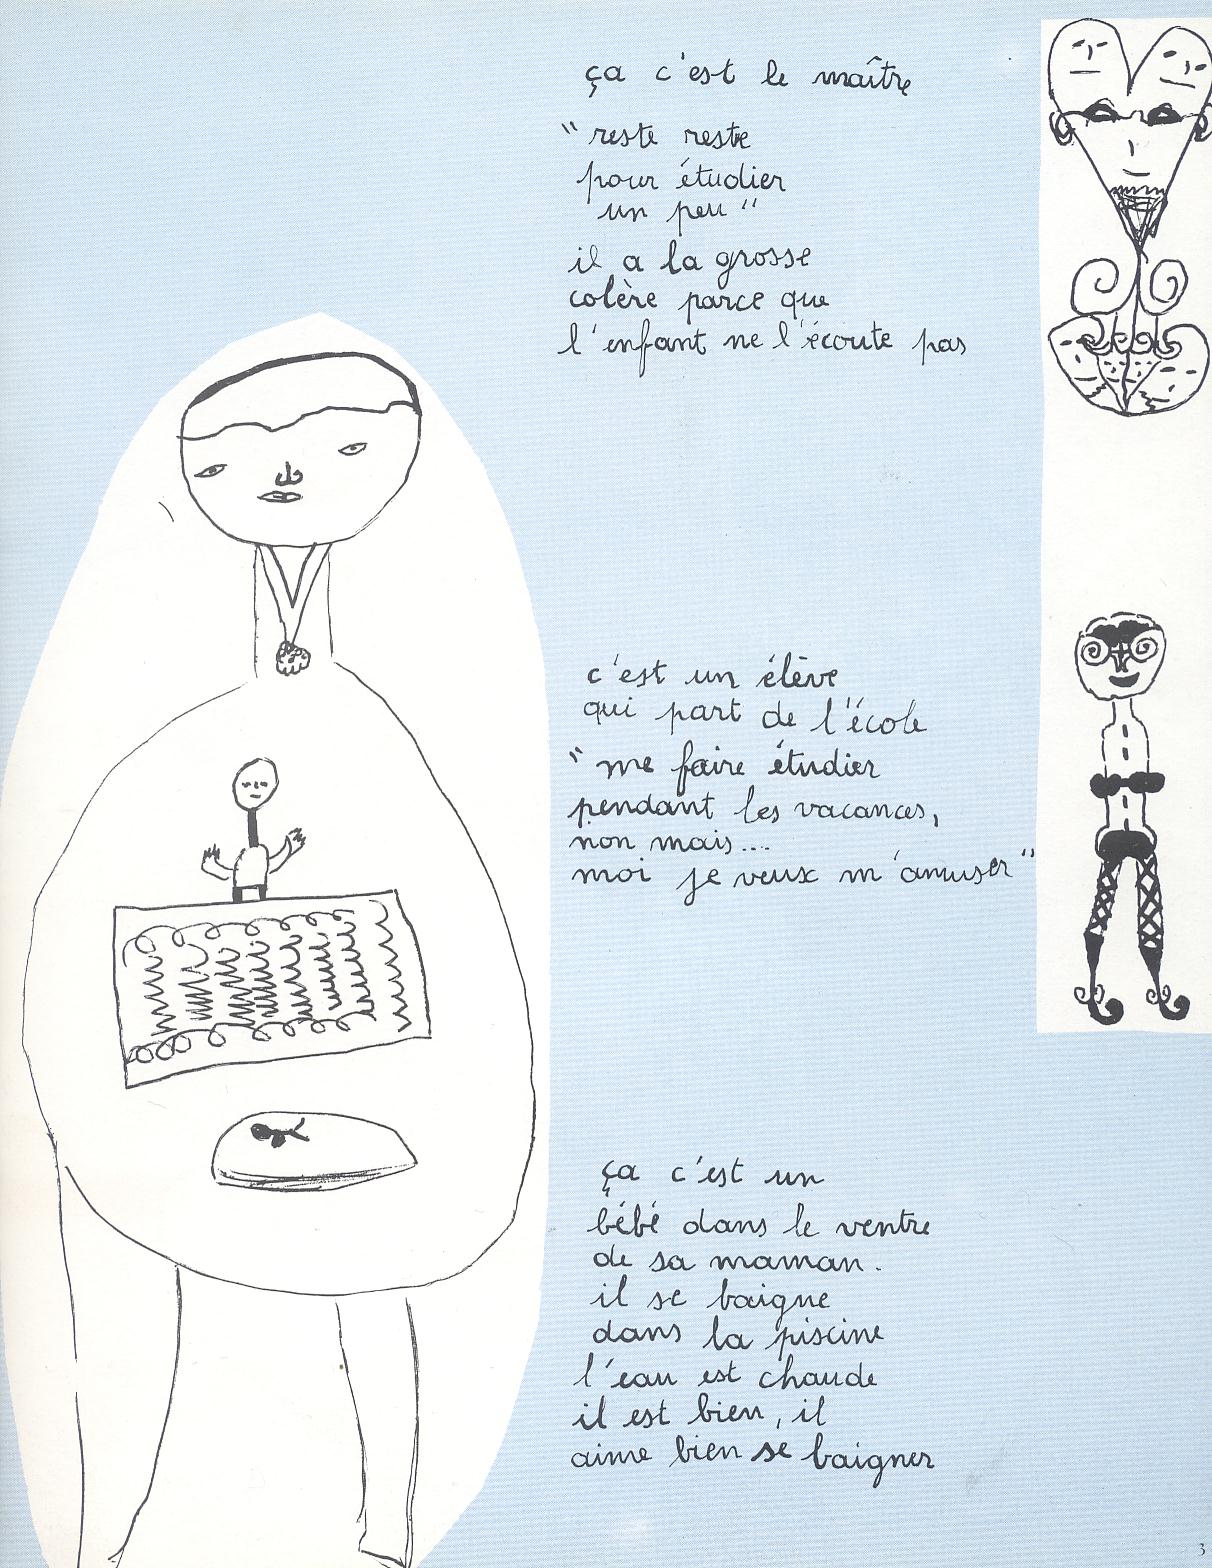 ça c'est le maître
"reste reste
pour étudier
un peu"
il a la grosse
colère parce que
l'enfant ne l'écoute pas
c'est un élève
qui part de l'école
"me faire étudier
pendant les vacances,
non mais...
moi je veux m'amuser"
ça c'est un
bébé dans le ventre
de sa maman.
il se baigne
dans la piscine
l'eau est chaude
il est bien, il
aime bien se baigner
3